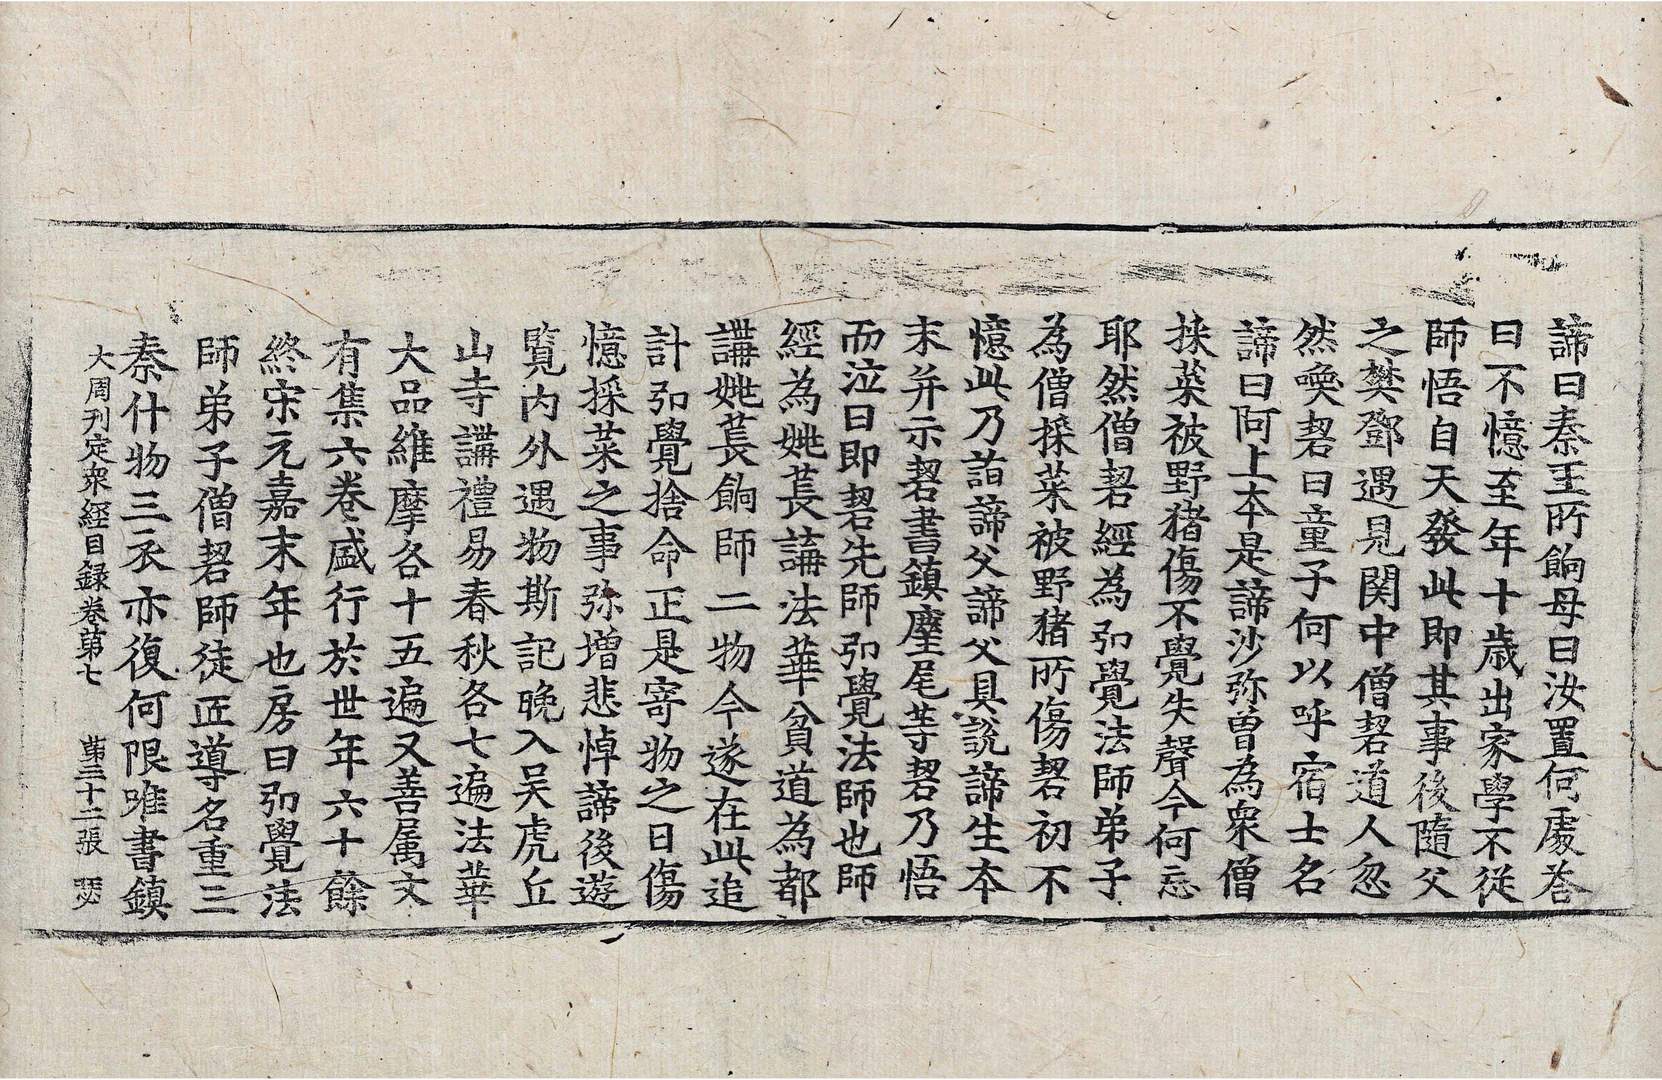 諦曰秦王所餉母曰汝置何處荅
曰不憶至年十歲出家學不從
師悟自天發此即其事後隨父
之樊鄧遇見関中僧䂮道人忽
然喚䂮曰童子何以呼宿士名
諦曰阿上本是諦沙弥曽為衆僧
採菜被野猪傷不覺失聲今何忘
耶然僧䂮經為弘覺法師弟子
為僧採菜被野猪所傷䂮初不
憶此乃詣諦父諦父具說諦生本
末并示䂮書鎮麈尾等䂮乃悟
而泣曰即䂮先師弘覺法師也師
經為姚萇講法華貧道為都
講姚萇餉師二物今遂在此追
計弘覺捨命正是寄物之日傷
憶採菜之事弥增悲悼諦後遊
覧内外遇物斯記晚入吴虎丘
山寺講禮易春秋各七遍法華
大品維摩各十五遍又善属文
有集六卷盛行於世年六十餘
終宋元嘉末年也房曰弘覺法
師弟子僧䂮師徒匠導名重三
秦什物三丞亦復何限唯書鎮
大周刊定衆經目録卷第七 第三十二張